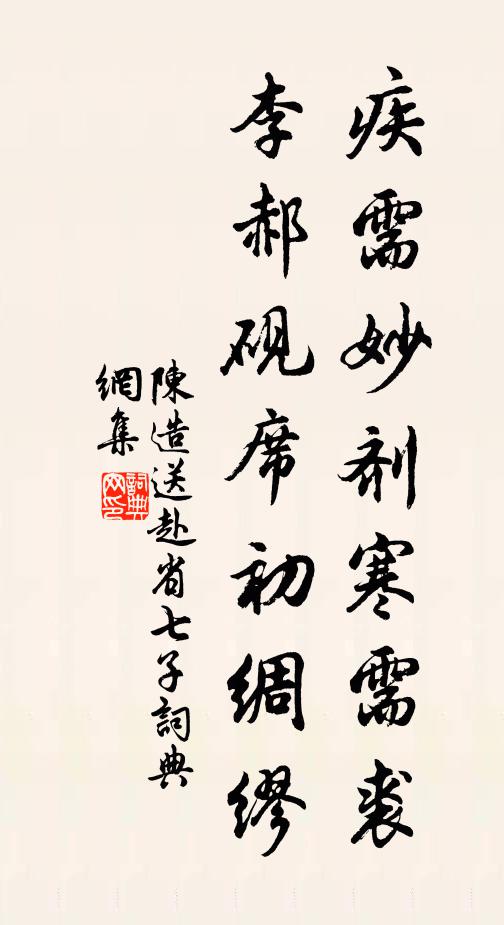 疾需妙剂寒需裘
李郝砚席初绸缪
陳造送赴省七子詞典
網集
詞典
网印